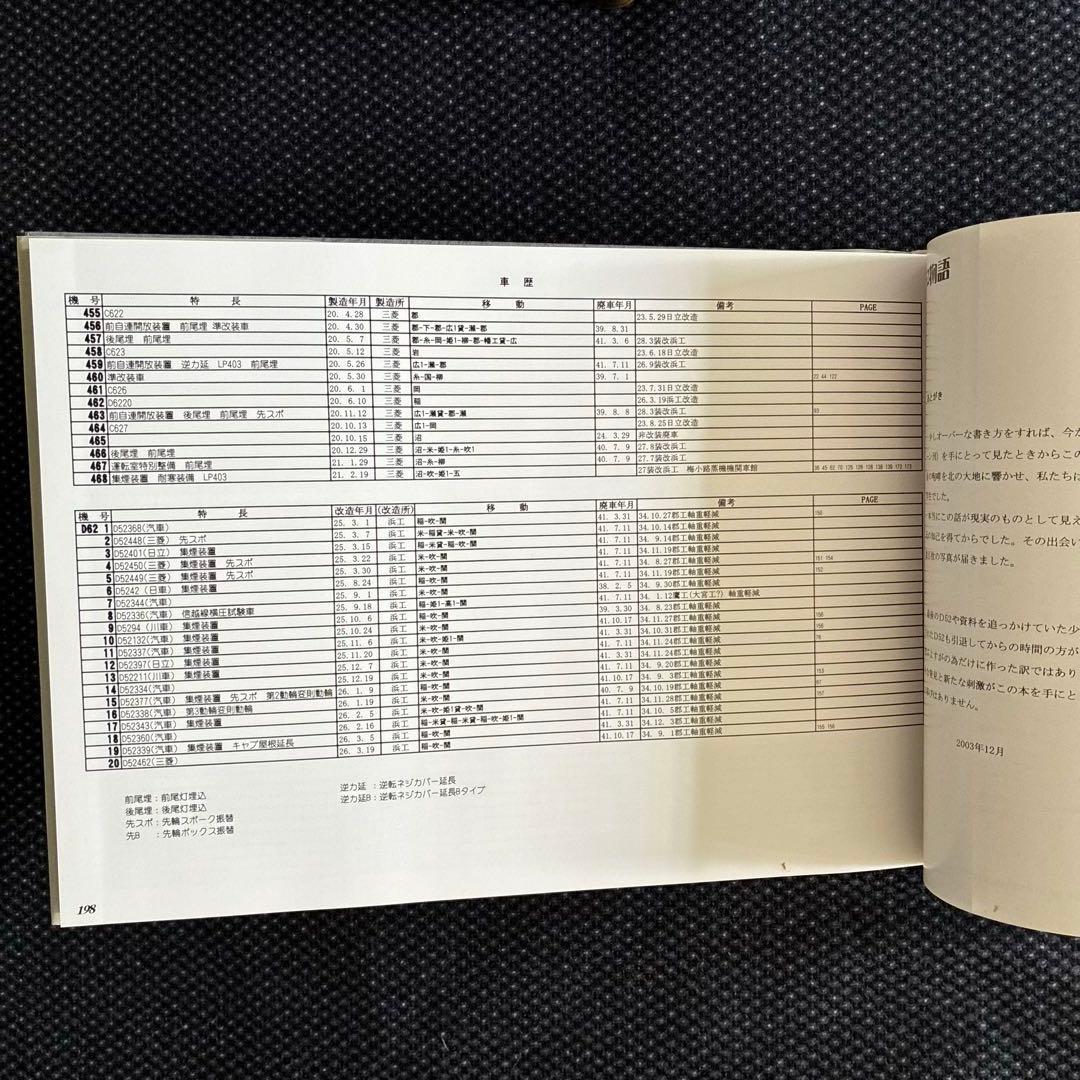 車 歴
機 号 特 長 製造年月 製造所 移 動 廃車年月 備考 PAGE
455 C622 20. 4.28 三菱 郡 23.5.29日立改造
456 前自連開放装置 前尾埋 準改装車 20. 4.30 三菱 郡-下-郡-広1貸-瀬-郡 39. 8.31
457 後尾埋 前尾埋 20. 5. 7 三菱 郡-糸-岡-姫1-柳-郡-幡工貸-広 41. 3. 6 28.3装改浜工
458 C623 20. 5.12 三菱 岩 23.6.18日立改造
459 前自連開放装置 逆力延 LP403 前尾埋 20. 5.26 三菱 広1-瀬-郡 41. 7.11 26.9装改浜工
460 準改装車 20. 5.30 三菱 糸-国-柳 39. 7. 1 22 44 122
461 C626 20. 6. 1 三菱 岡 23.7.31日立改造
462 D6220 20. 6.10 三菱 稲 26.3.19浜工改造
463 前自連開放装置 後尾埋 前尾埋 先スポ 20.11.12 三菱 広1-瀬貸-郡-瀬 39. 8. 8 28.3装改浜工 93
464 C627 20.10.13 三菱 広1-岡 23.8.25日立改造
465 20.10.15 三菱 沼 24. 3.29 非改装廃車
466 後尾埋 前尾埋 20.12.29 三菱 沼-米-姫1-糸-吹1 40. 7. 9 27.8装改浜工
467 運転室特別整備 前尾埋 21. 1.29 三菱 沼-糸-柳 40. 7. 9 27.7装改浜工
468 集煙装置 耐寒装備 LP403 21. 2.19 三菱 沼-吹-姫1-五 27装改浜工 梅小路蒸機機関車館 36 45 62 70 125 126 128 138 139 172 173
機 号 特 長 改造年月 (改造所) 移 動 廃車年月 備考 PAGE
D62 1 D52368(汽車) 25. 3. 1 浜工 稲-吹-関 41. 3.31 34.10.27郡工軸重軽減 150
2 D52448(三菱) 先スポ 25. 3. 7 浜工 米-稲貸-米-関 41. 7.11 34.10.14郡工軸重軽減
3 D52401(日立) 集煙装置 25. 3.15 浜工 稲-米貸-稲-関 41. 7.11 34. 9.14郡工軸重軽減
4 D52450(三菱) 集煙装置 先スポ 25. 3.22 浜工 米-吹-関 41. 7.11 34.11.19郡工軸重軽減
5 D52449(三菱) 集煙装置 先スポ 25. 3.30 浜工 米-吹-関 41. 7.11 34. 8.27郡工軸重軽減 151 154
6 D5242 (日車) 集煙装置 25. 8.24 浜工 稲-吹-関 41. 7.11 34.11.19郡工軸重軽減 152
7 D52344(汽車) 25. 9. 1 浜工 米-吹-関 38. 2. 5 34. 9.30郡工軸重軽減
8 D52336(汽車) 信越線横圧試験車 25. 9.18 浜工 稲-姫1-高1-関 41. 7.11 34. 1.12鷹工(大宮工?) 軸重軽減
9 D5294 (川車) 集煙装置 25.10. 6 浜工 米-吹-関 39. 3.30 34. 8.23郡工軸重軽減
10 D52132(汽車) 集煙装置 25.10.24 浜工 米-吹-関 41.10.17 34.11.27郡工軸重軽減 156
11 D52337(汽車) 集煙装置 25.11. 6 浜工 米-吹-姫1-関 41. 3.31 34.10.31郡工軸重軽減 156
12 D52397(日立) 集煙装置 25.11.20 浜工 米-吹-関 41. 3.31 34.11.24郡工軸重軽減 76
13 D52211(川車) 集煙装置 25.12. 7 浜工 米-吹-関 41. 7.11 34.11.20郡工軸重軽減
14 D52334(汽車) 25.12.19 浜工 米-吹-関 41. 7.11 34. 9.20郡工軸重軽減
15 D52377(汽車) 集煙装置 先スポ 第2動輪変則動輪 26. 1. 9 浜工 稲-吹-関 41.10.17 34. 9. 3郡工軸重軽減 153
16 D52338(汽車) 第3動輪変則動輪 26. 1.19 浜工 米-吹-関 40. 7. 9 34.10.19郡工軸重軽減
17 D52343(汽車) 集煙装置 26. 2. 5 浜工 稲-米-吹-姫1貸-吹-関 41. 7.11 34.11.28郡工軸重軽減 157
18 D52360(汽車) 26. 2.16 浜工 稲-米貸-稲-米貸-稲-吹-姫1-関 41. 7.11 34.10. 5郡工軸重軽減
19 D52339(汽車) 集煙装置 キャブ屋根延長 26. 3. 5 浜工 稲-吹-関 41. 3.31 34.12. 3郡工軸重軽減
20 D52462(三菱) 26. 3.19 浜工 稲-吹-関 41.10.17 34. 9. 1郡工軸重軽減 155 158
前尾埋：前尾灯埋込
後尾埋：後尾灯埋込
先スポ：先輪スポーク振替
先B ：先輪ボックス振替
逆力延 ：逆転ネジカバー延長
逆力延B：逆転ネジカバー延長Bタイプ
198
物語
あとがき
少しオーバーな書き方をすれば、今か
を手にとって見たときからこの
の咆哮を北の大地に響かせ、私たちに
でした。
本当にこの話が現実のものとして見え
の知己を得てからでした。その出会い
枚の写真が届きました。
最後のD52や資料を追っかけていた少
たD52も引退してからの時間の方が
よすがの為だけに作った訳ではあり
発見と新たな刺激がこの本を手にと
はありません。
2003年12月